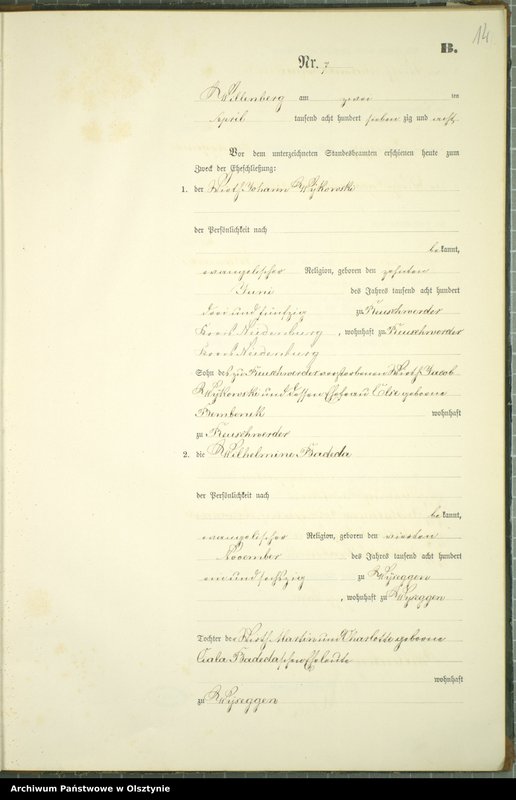 14
B.
Nr. 7
Willenberg am zwei ten
April tausend acht hundert sieben zig und acht
Vor dem unterzeichneten Standesbeamten erschienen heute zum
Zweck der Eheschließung:
1. der Wirth Johann Wykowski
der Persönlichkeit nach
be kannt,
evangelischer Religion, geboren den zehnten
Juni des Jahres tausend acht hundert
drei und fünfzig zu Reuschwerder
Kreis Neidenburg, wohnhaft zu Reuschwerder
Kreis Neidenburg
Sohn des zu Reuschwerder verstorbenen Wirth Jacob
Wykowski und dessen Ehefrau geborene
Bembenek wohnhaft
zu Reuschwerder
2. die Wilhelmine Badeda
der Persönlichkeit nach
be kannt,
evangelischer Religion, geboren den vierten
November des Jahres tausend acht hundert
ein und sechszig zu Wyseggen
, wohnhaft zu Wyseggen
Tochter der Wirth Martin und Charlotte geborene
Badeda schen Eheleute
wohnhaft
zu Wyseggen
Archiwum Państwowe w Olsztynie